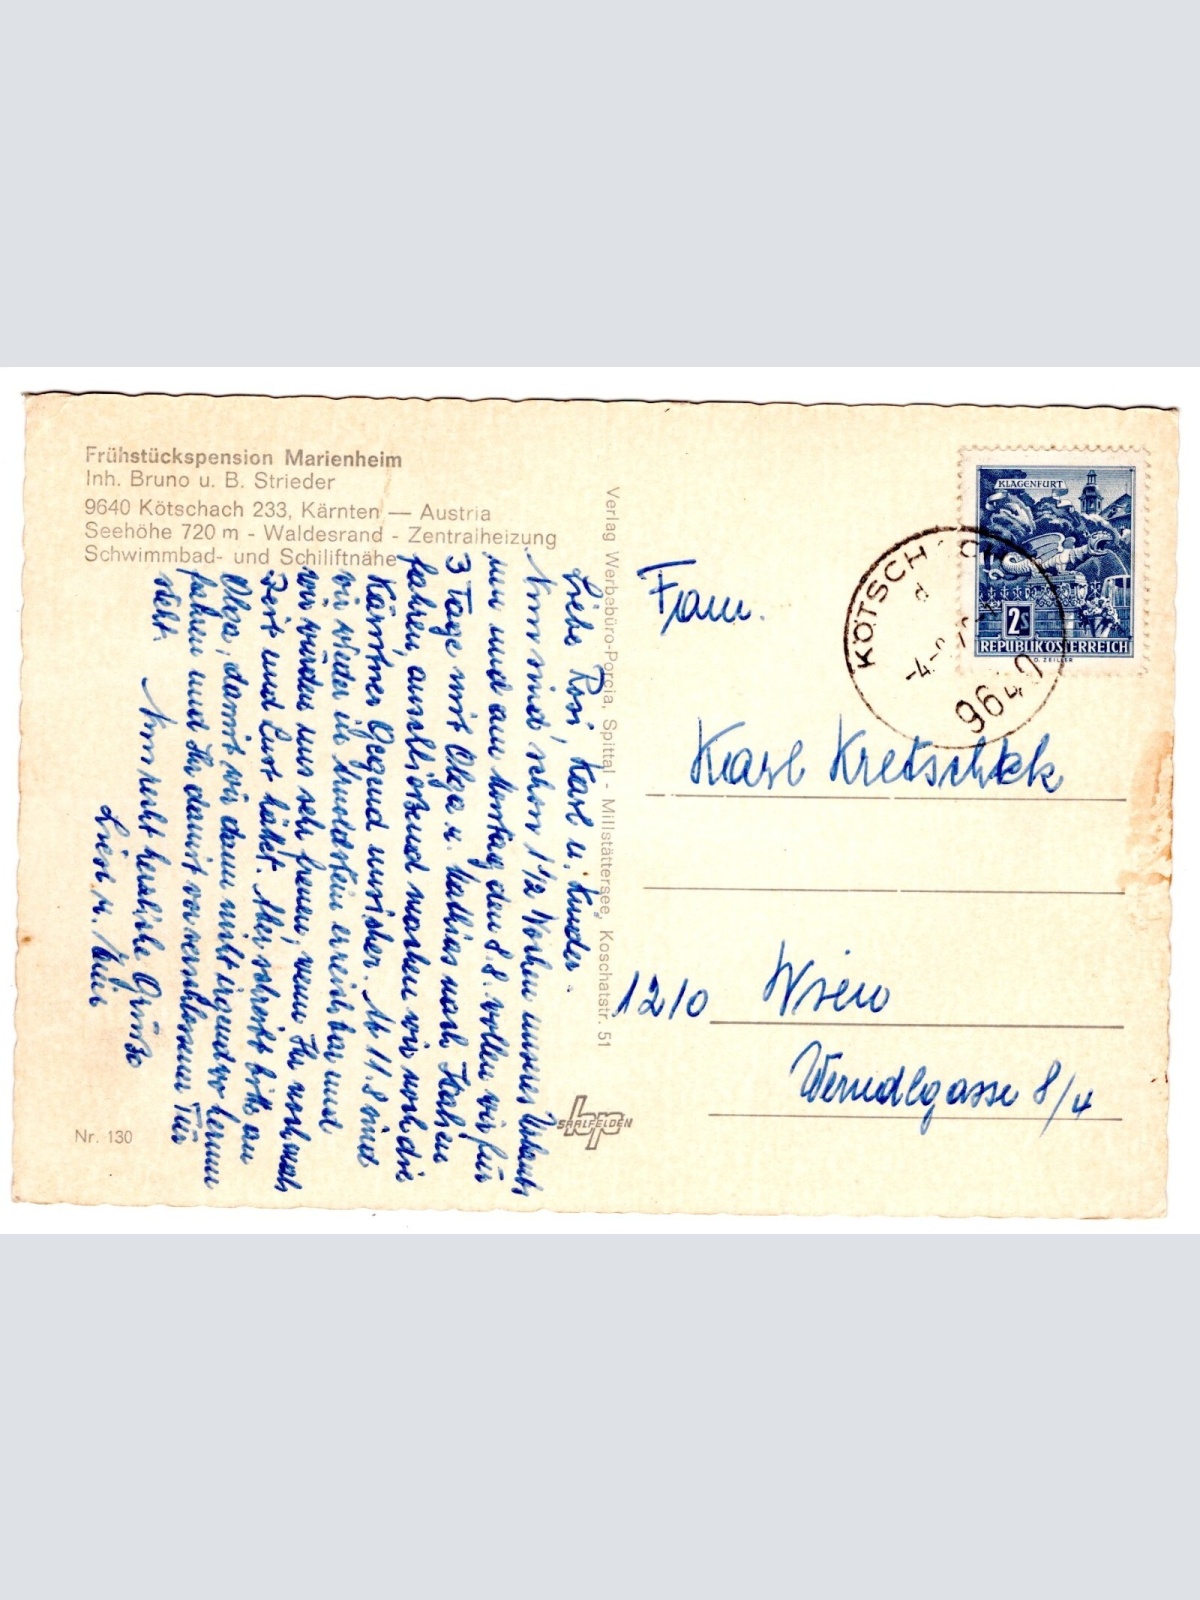 Frühstückspension Marienheim
Inh. Bruno u. B. Strieder
9640 Kötschach 233, Kärnten — Austria
Seehöhe 720 m - Waldesrand - Zentralheizung
Schwimmbad- und Schiliftnähe
Liebe Rosi, Karl u. Kinder.
Nun sind schon 1 1/2 Wochen unseres Urlaubs
um und am Montag den 8.8. wollen wir für
3 Tage mit Olga u. Mathias nach Italien
fahren, anschließend machen wir noch die
Kärntner Gegend unsicher. Ab 11.8 sind
wir wieder in Arnoldstein erreichbar und
wir würden uns sehr freuen, wenn Ihr nochmals
Zeit und Lust hättet. Aber schreibt bitte an
Olga, damit wir dann nicht irgendwo herum
fahren und Ihr damit vor verschlossener Tür
steht.
Nun recht herzliche Grüsse
Liesl u.
Nr. 130
Verlag Werbebüro-Porcia, Spittal - Millstättersee, Koschatstr. 51
hp
SAALFELDEN
KLAGENFURT
2S
REPUBLIK ÖSTERREICH
O. ZEILLER
KÖTSCHACH
9640
Fam.
Karl Kretschek
1210 Wien
Werndlgasse 8/4